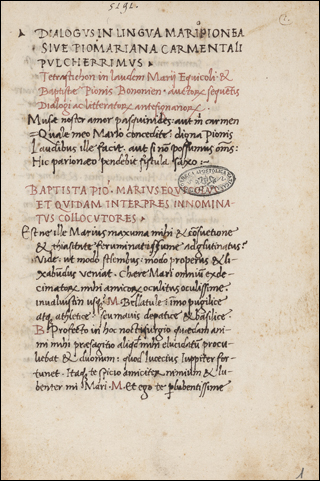 5192.
1.
DIALOGVS IN LINGVA MARIPIONEA
SIVE PIOMARIANA CARMENTALI
PVLCHERRIMVS
Tetrastichon in laudem Marij Equicoli &
Baptistæ Pionis Bononien. auctorum sequetis
Dialogi ac litteratorum antesignanorum
Musæ noster amor pasquirides: aut mihi carmen
Quale meo Mario concedite: digna Pionis
Laudibus ille facit. aut si non possumus omnes:
Hic parionæo pendebit fistula saxo:~
BAPTISTA PIO. MARIVS
ET QVIDAM INTERPRES INNOMINA
TVS COLLOCVTORES
Est ne ille Marius maxuma mihi & cosuetione
&
Vide: ut modo stlembus: modo properus & li
xabundus veniat. Chere Mari omniu exde
cimatorum mihi amicorum oculitus oculissime.
inualuistin usq; M. Bellatule: imo pugilice
atq; athletice. scumauis basilice
B. Profecto in hoc noctisurgio quedam ani
mi mihi præsagitio aliqd mihi elucidatum procu
lubat & duonum: quod lucetius Iuppiter for
tunet. Itaq; te spicio amiciter nimium & lu
benter mi Mari. M. Et ego te plubentissime
1